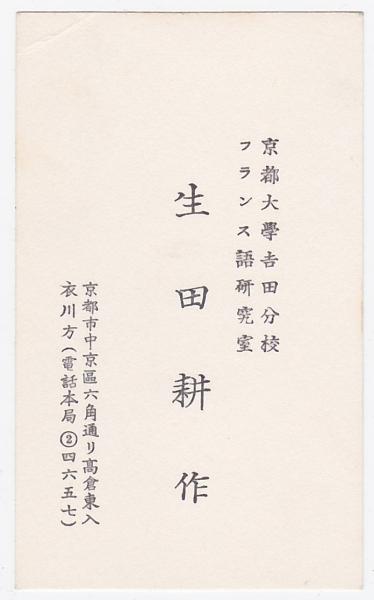 京都大學吉田分校
フランス語研究室
生田耕作
京都市中京區六角通リ高倉東入
衣川方（電話本局②四六五七）